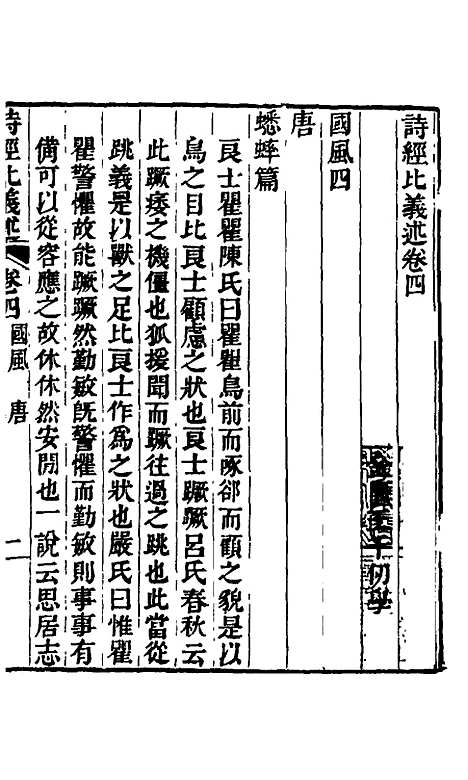 詩經比義述卷四
國風四
唐
蟋蟀篇
良士瞿瞿陳氏曰瞿瞿鳥前而啄卻而顧之貌是以
鳥之目比良士顧慮之狀也良士蹶蹶呂氏春秋云
此蹶痿之機僵也狐援聞而蹶往過之跳也此當從
跳義是以獸之足比良士作為之狀也嚴氏曰惟瞿
瞿警懼故能蹶蹶然勤敏旣警懼而勤敏則事事有
備可以從容應之故休休然安閒也一說云思居志
詩經比義述 卷四 國風 唐 二